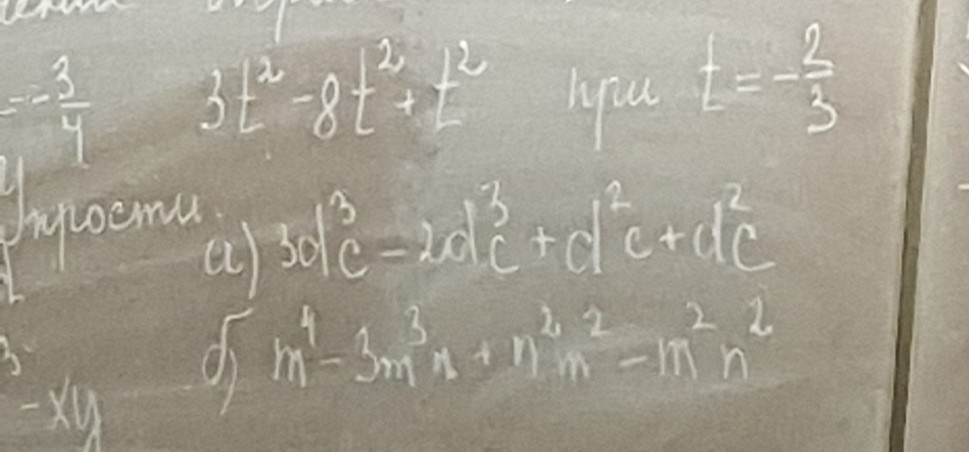 =-3/4 3t²-8t²+t² при t=-2/3
Упрости.
а) 3d³c-2d³c+d²c+d²c
б) m⁴-3m³n+n²m²-m²n²
-xy